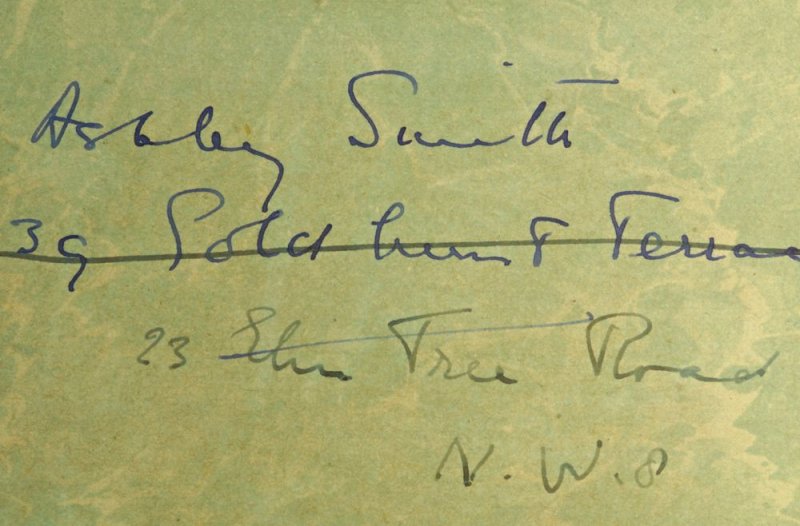 Ashley Smith
39 Goldhurst Terrac
23 Elm Tree Road
N.W.8